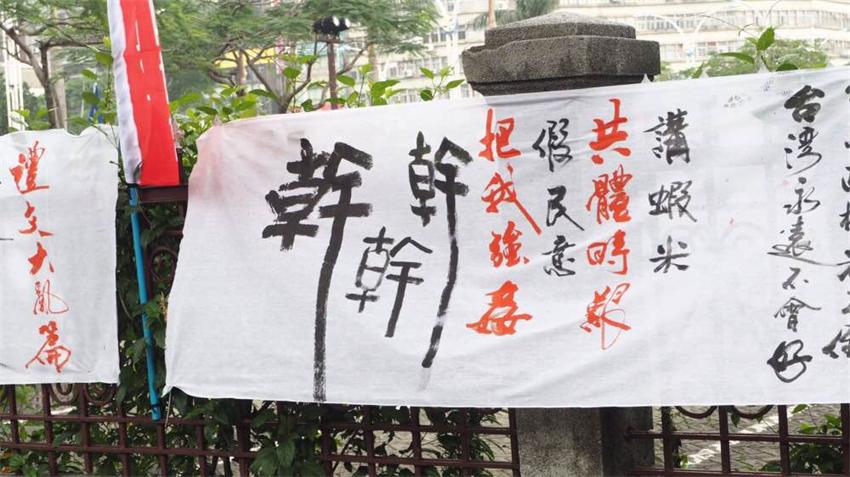 台湾永遠不會好
講蝦米
共體時艱
假民意
把我強姦
幹
幹
幹
禮文大亂篇